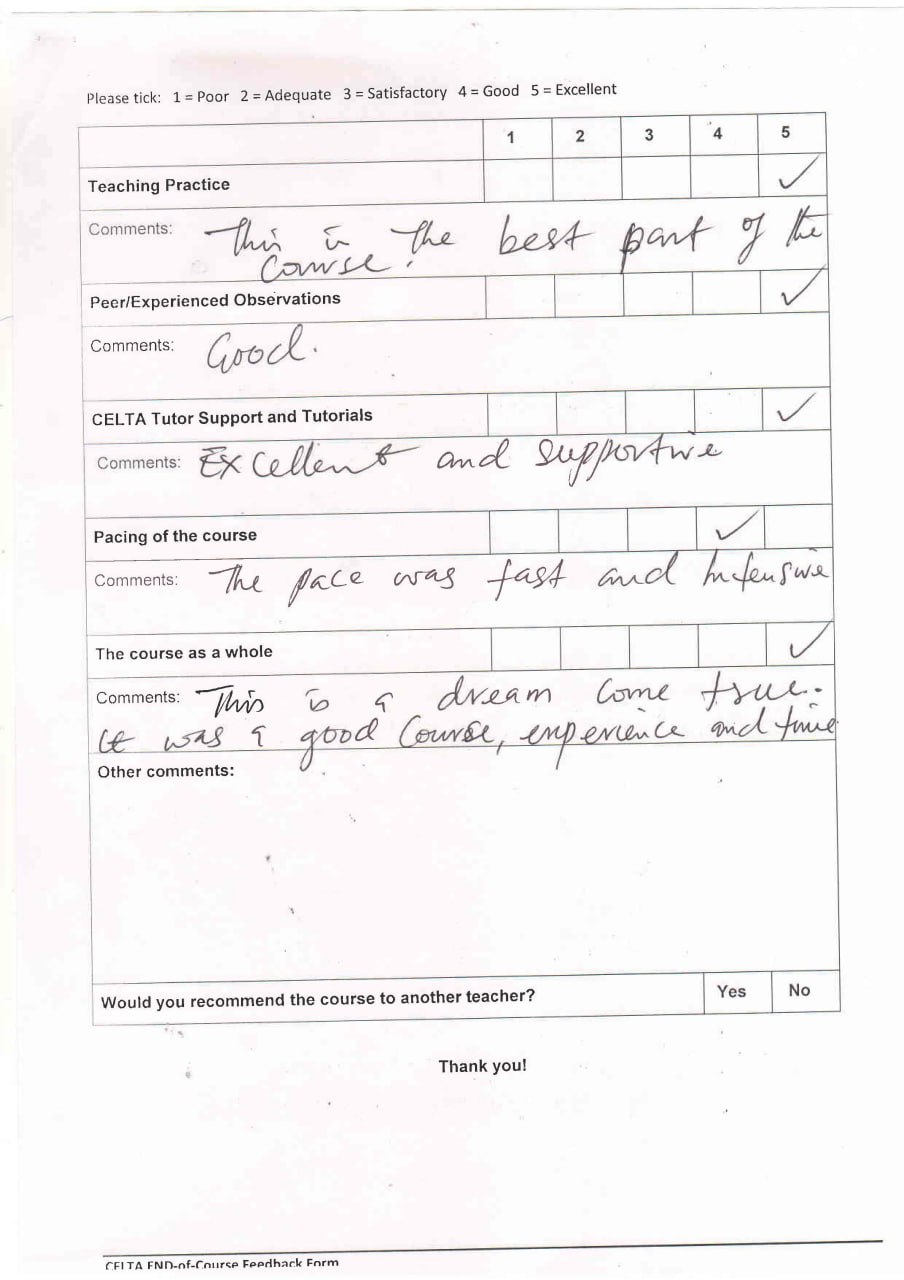 Please tick: 1 = Poor 2 = Adequate 3 = Satisfactory 4 = Good 5 = Excellent
1 2 3 4 5
Teaching Practice ✓
Comments: This is the best part of the
course.
Peer/Experienced Observations ✓
Comments: Good.
CELTA Tutor Support and Tutorials ✓
Comments: Excellent and supportive
Pacing of the course ✓
Comments: The pace was fast and Intensive
The course as a whole ✓
Comments: This is a dream come true.
It was a good course, experience and time
Other comments:
Would you recommend the course to another teacher? Yes No
Thank you!
CELTA END-of-Course Feedback Form